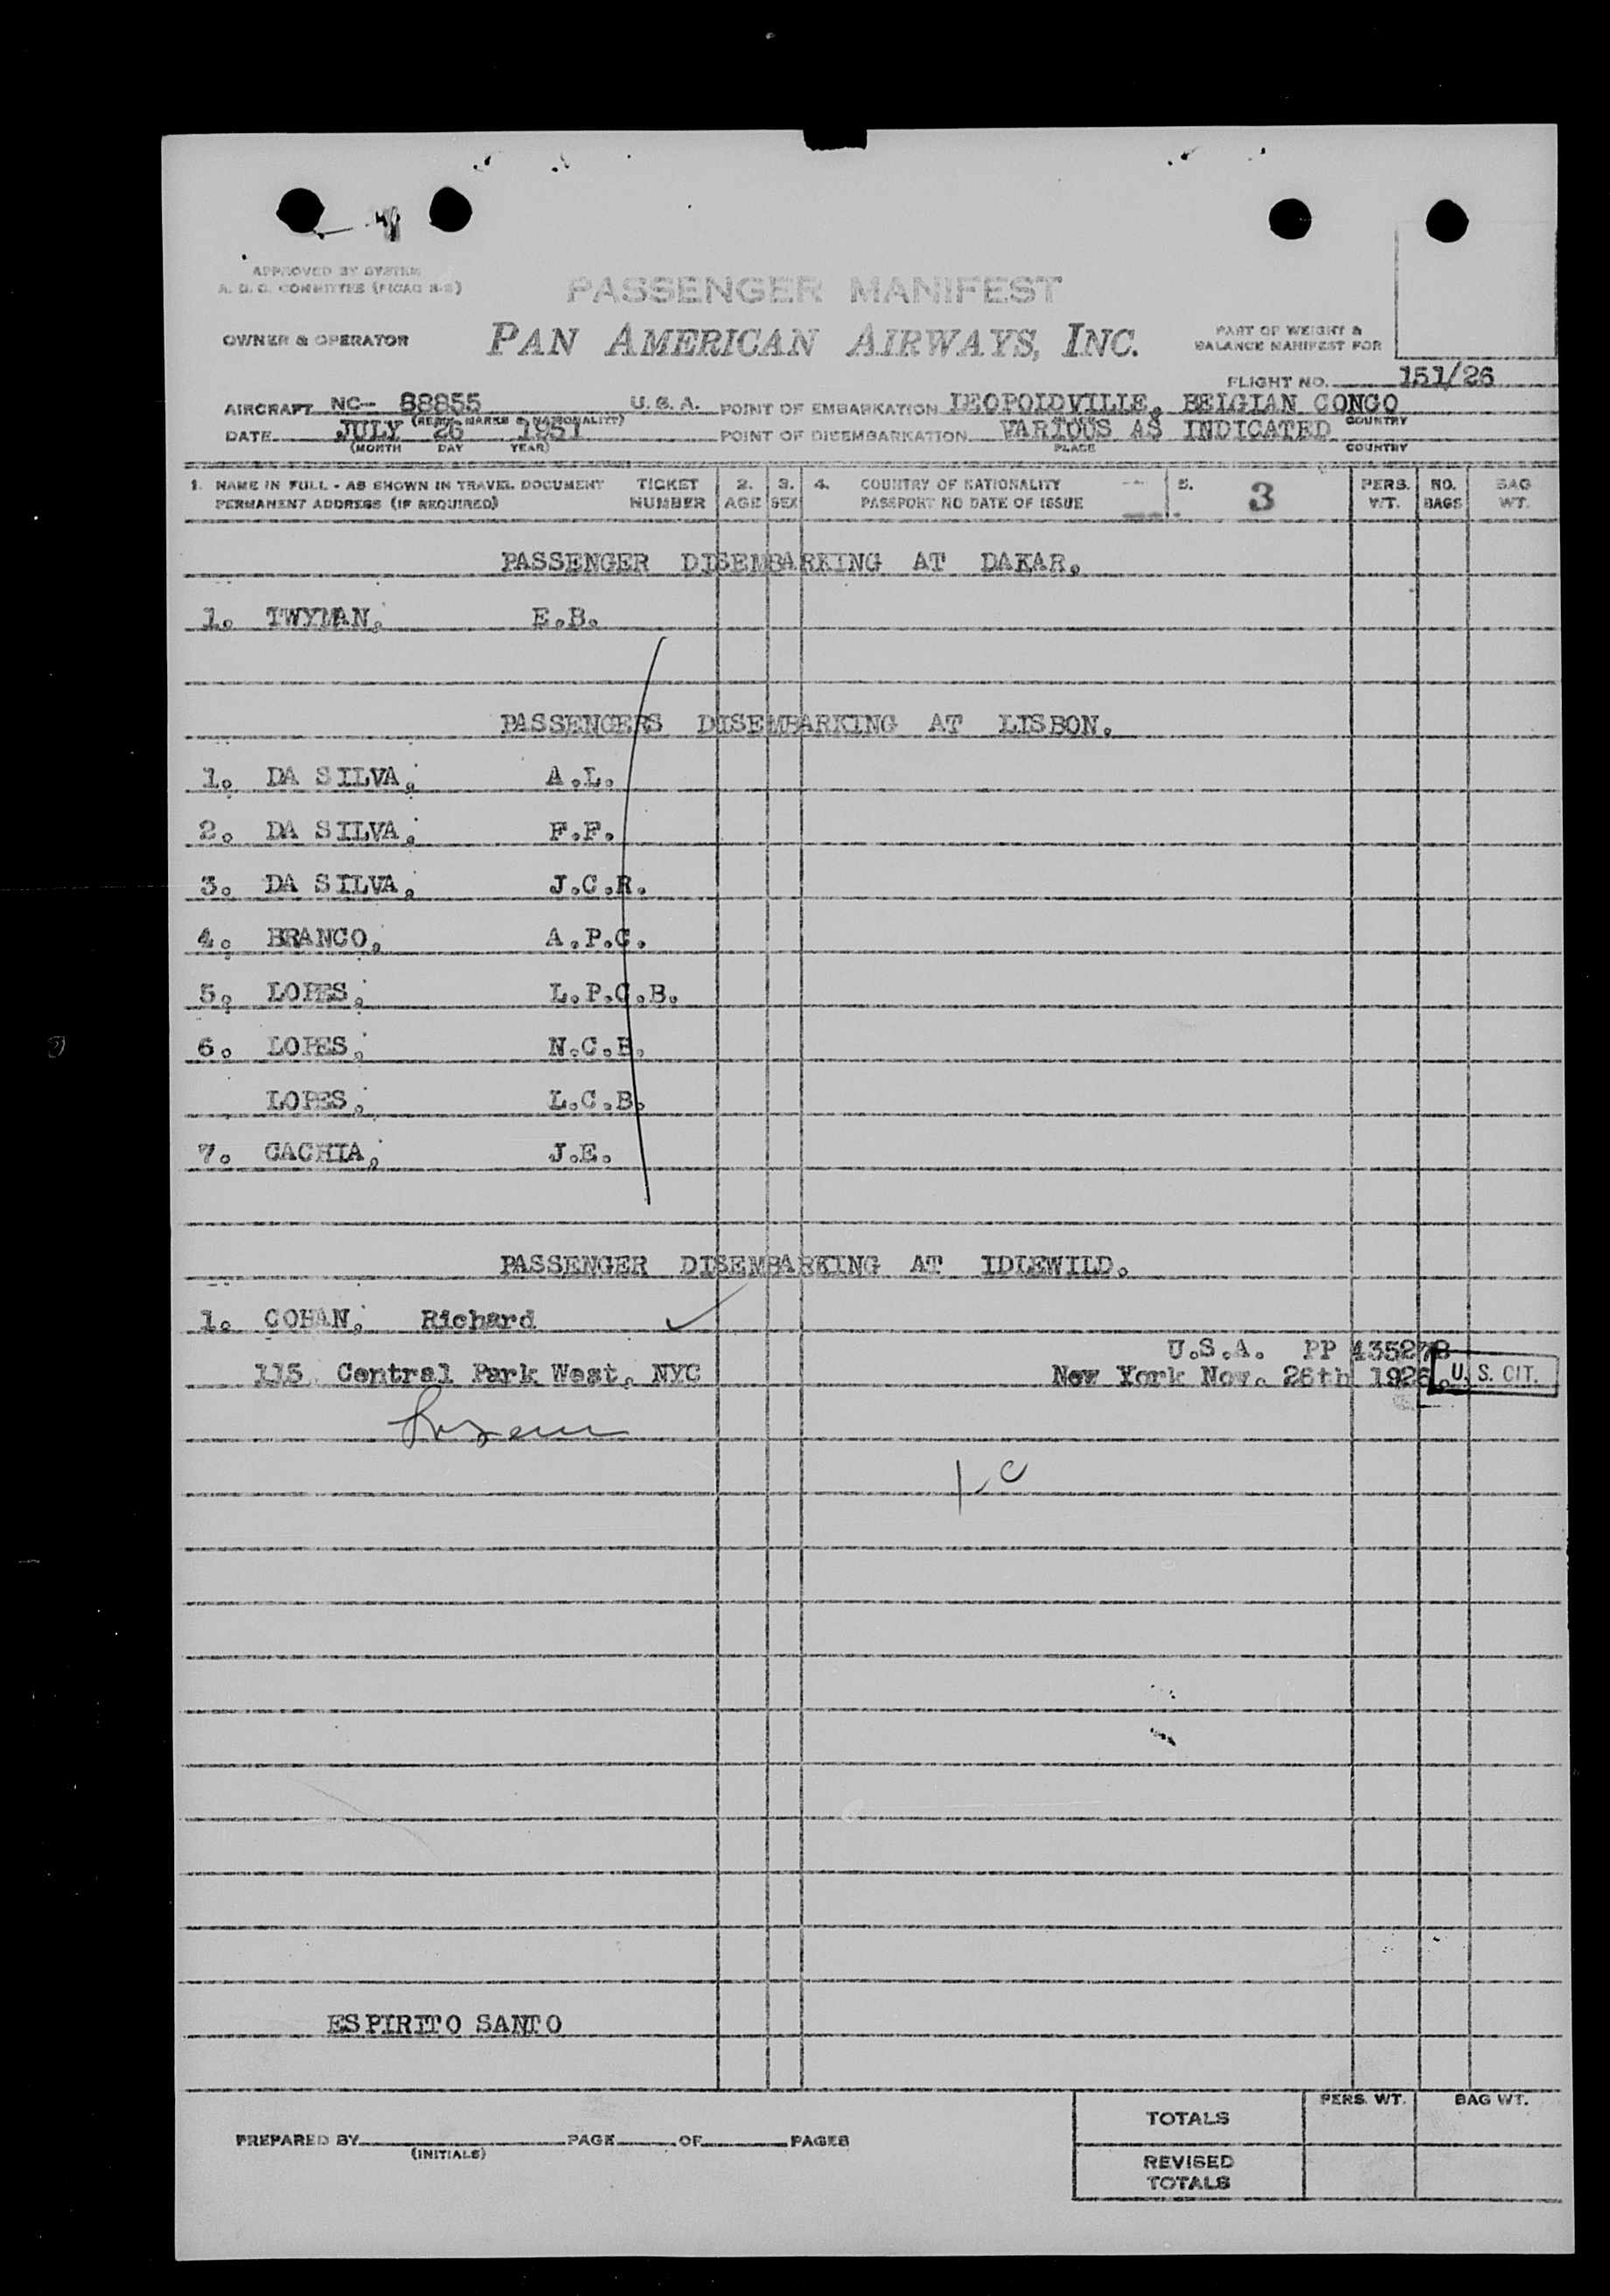 APPROVED BY SYSTEM
A. D. C. COMMITTEE (FICAO 8-2)
PASSENGER MANIFEST
OWNER & OPERATOR
PAN AMERICAN AIRWAYS, INC.
PART OF WEIGHT &
BALANCE MANIFEST FOR
FLIGHT NO. 151/26
AIRCRAFT NC- 88855 U.S.A. POINT OF EMBARKATION LEOPOLDVILLE, BELGIAN CONGO
(REG. MARKS & NATIONALITY) COUNTRY
DATE JULY 26 1951 POINT OF DISEMBARKATION VARIOUS AS INDICATED
(MONTH DAY YEAR) PLACE COUNTRY
1. NAME IN FULL - AS SHOWN IN TRAVEL DOCUMENT TICKET 2. 3. 4. COUNTRY OF NATIONALITY 5. 3 PERS. NO. BAG
PERMANENT ADDRESS (IF REQUIRED) NUMBER AGE SEX PASSPORT NO DATE OF ISSUE WT. BAGS WT.
PASSENGER DISEMBARKING AT DAKAR.
1. TWYMAN, E.B.
PASSENGERS DISEMBARKING AT LISBON.
1. DA SILVA, A.L.
2. DA SILVA, F.F.
3. DA SILVA, J.C.R.
4. BRANCO, A.P.C.
5. LOPES, L.P.C.B.
6. LOPES, N.C.B.
LOPES, L.C.B.
7. CACHIA, J.E.
PASSENGER DISEMBARKING AT IDLEWILD.
1. COHAN, Richard
U.S.A. PP 435278
115 Central Park West, NYC New York Nov. 26th 1926. U.S. CIT.
ESPIRITO SANTO
PERS. WT. BAG WT.
TOTALS
PREPARED BY PAGE OF PAGES
(INITIALS)
REVISED
TOTALS